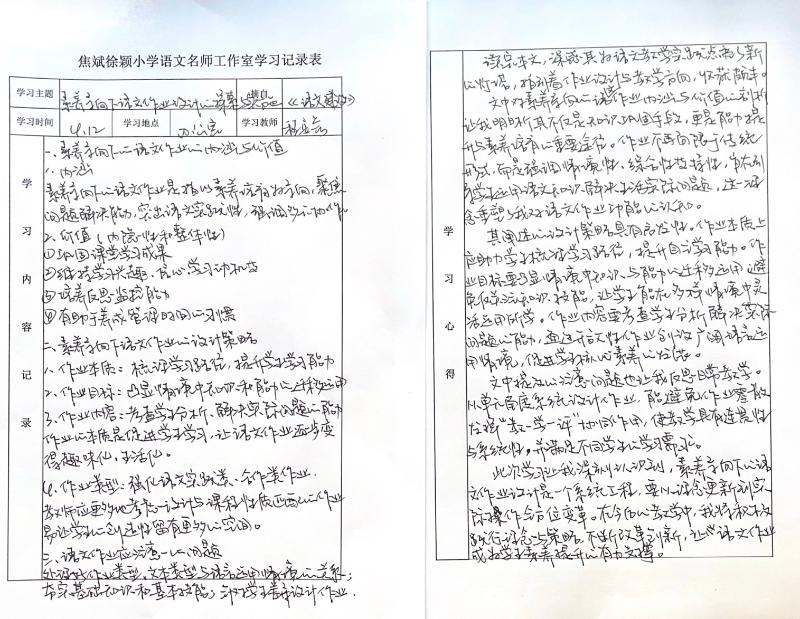 焦斌徐颖小学语文名师工作室学习记录表
学习主题 素养导向下语文作业设计的 《语文建设》
学习时间 4.12 学习地点 办公室 学习教师
学习内容记录
一、素养导向下的语文作业的内涵与价值
1.内涵
素养导向下的语文作业是指以素养培育为导向，聚焦
问题解决能力，突出语文实践性，强调
2.价值（内隐性和整体性）
①巩固课堂学习成果
②维持学习兴趣、信心学习动机等
③培养反思监控能力
④有助于养成管理时间的习惯
二、素养导向下语文作业的设计策略
1.作业本质：标识学习路径，提升学生学习能力
2.作业目标：凸显情境中知识和能力的迁移运用
3.作业内容：考查学生分析、解决实际问题的能力
作业的本质是促进学生学习，让语文作业逐步变
得趣味化，生活化。
4.作业类型：强化语文实践类、合作类作业。
教师应更多地考虑设计与课程性质匹配的作业
易让学生的创造性留有更多的空间。
三、语文作业应注意的问题
处理好作业类型、文本类型与语言运用情境的关系；
夯实基础知识和基本技能；针对学生差异设计作业。
学习心得
读完本文，深感其为语文教学实践点亮了新
的灯塔，指引着作业设计与教学方向，收获颇丰。
文中对素养导向的语文作业内涵与价值的剖析
让我明晰其不仅是知识巩固手段，更是能力提
升与素养培育的重要途径。作业不再局限于传统
形式，而是强调情境性、综合性
学生运用语文知识解决生活实际问题，这一理
念重塑了我对语文作业功能的认知。
其阐述的设计策略具有启发性。作业本质上
应助力学生标识学习路径，提升自主学习能力。作
业目标要凸显情境中知识与能力的迁移运用，避
免仅关注知识、技能，让学生能在多样情境中灵
活运用所学。作业内容重考查学生分析解决实际
问题的能力，通过开放性作业创设广阔语言运
用情境，促进学生核心素养的发展。
文中提及的注意问题也让我反思日常教学。
从单元角度系统设计作业，能避免作业零散
发挥“教—学—评”协同作用，使教学具有连贯性
与系统性，并满足不同学生的学习需求。
此次学习让我深刻认识到，素养导向下的语
文作业设计是一个系统工程，要从理念更新到实
际操作全方位变革。在今后的教学中，我将积极
践行理念与策略，不断改革创新，让语文作业
成为学生素养提升的有力支撑。